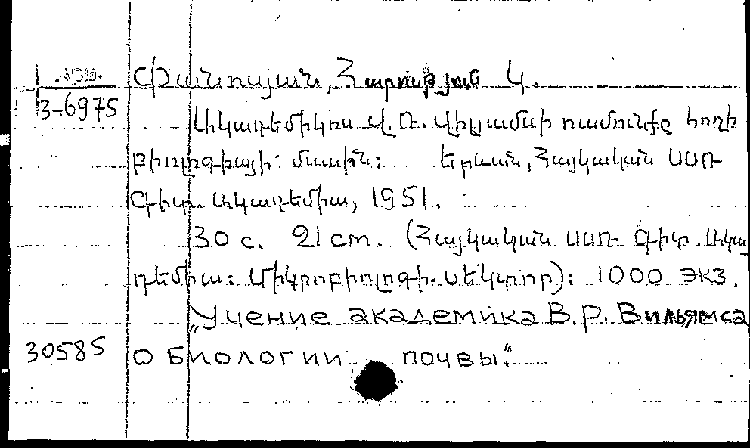 Փանոսյան, Հարություն Կ.
3-6975
Ակադեմիկոս Վ.Ռ. Վիլյամսի ուսմունքը հողի
բիոլոգիայի մասին: Երևան, Հայկական ՍՍՌ
Գիտ. Ակադեմիա, 1951.
30 с. 21 cm. (Հայկական ՍՍՌ Գիտ. Ակա
դեմիա: Միկրոբիոլոգի. սեկտոր): 1000 экз.
"Учение академика В.Р. Вильямса
30585 о биологии почвы."